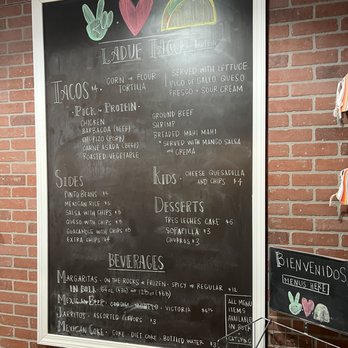 LADUE TACO
TACOS
CORN or FLOUR TORTILLA
SERVED WITH LETTUCE
PICO DE GALLO QUESO
FRESCO + SOUR CREAM
PICK A PROTEIN
CHICKEN
BARBACOA (BEEF)
CHORIZO (PORK)
CARNE ASADA (BEEF)
ROASTED VEGETABLE
GROUND BEEF
SHRIMP
BREADED MAHI MAHI
SERVED WITH MANGO SALSA
and CREMA
SIDES
PINTO BEANS
MEXICAN RICE
SALSA WITH CHIPS
QUESO WITH CHIPS
GUACAMOLE WITH CHIPS
EXTRA CHIPS
KIDS - CHEESE QUESADILLA
AND CHIPS $4
DESSERTS
TRES LECHES CAKE
SOPAPILLA $3
CHURROS $3
BEVERAGES
MARGARITAS - ON THE ROCKS or FROZEN - SPICY or REGULAR
MEXICAN BEER - CORONA MODELO VICTORIA
JARRITOS - ASSORTED FLAVORS $3
MEXICAN COKE - COKE DIET COKE BOTTLED WATER $3
ALL MENU
ITEMS
AVAILABLE
IN BULK
BIENVENIDOS
MENUS HERE